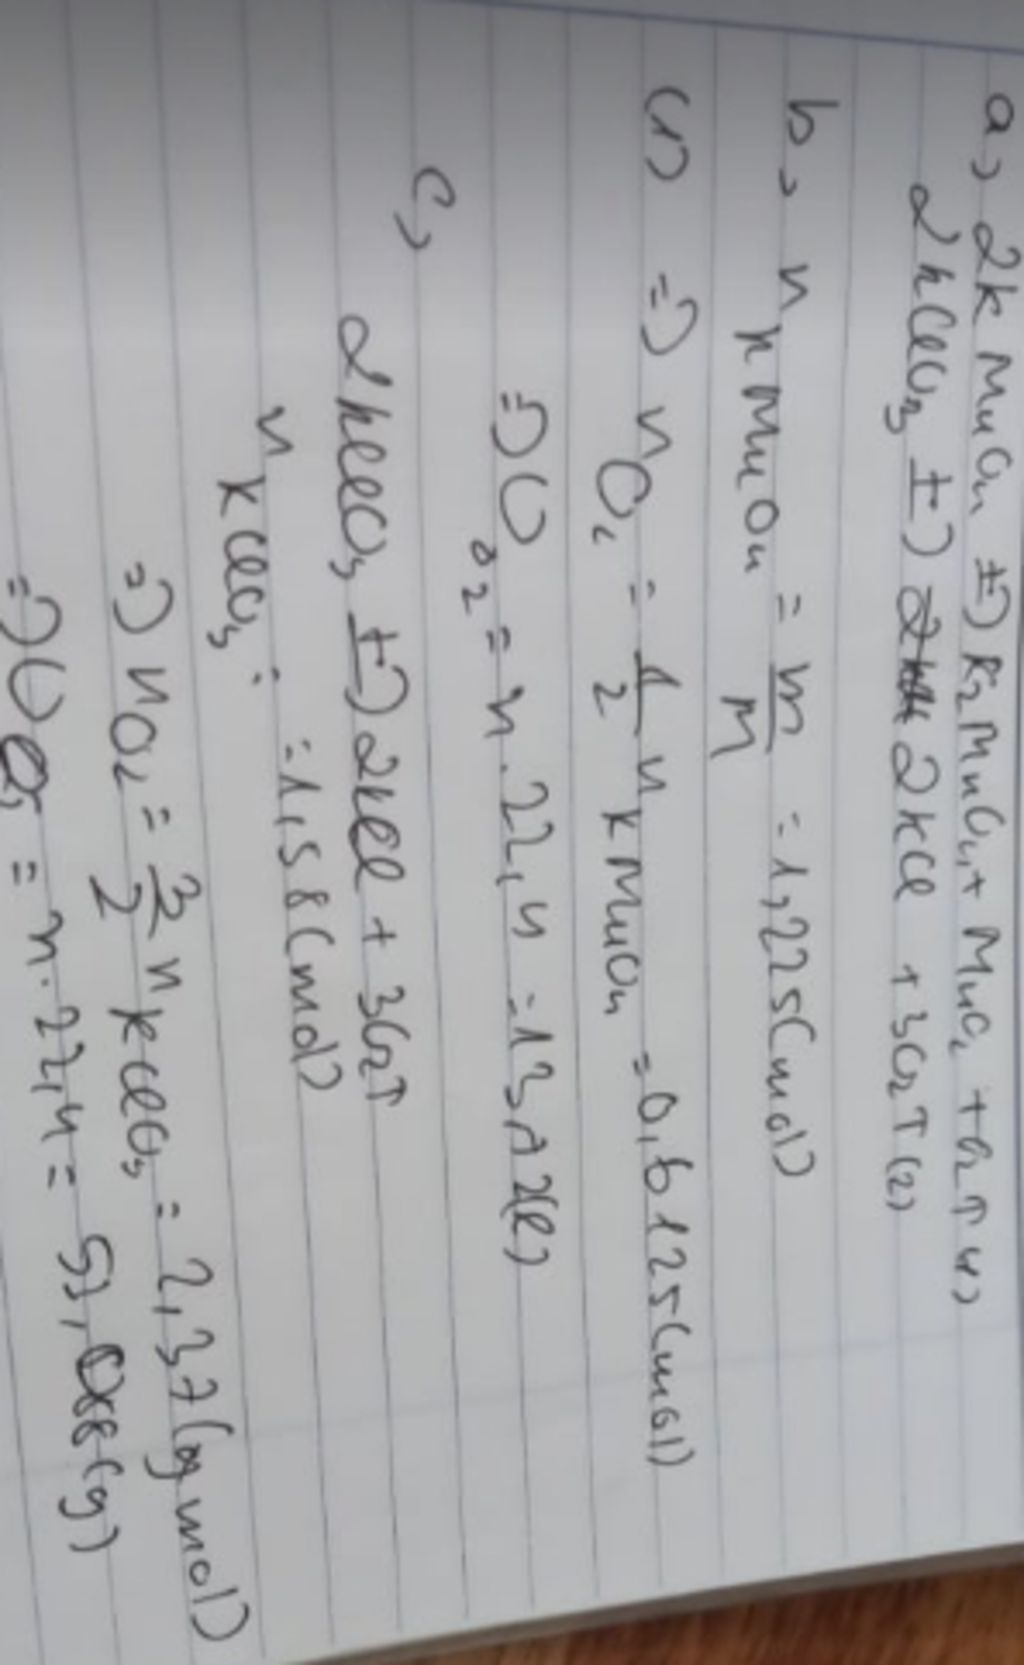 a, 2KMnO4 t°→ K2MnO4 + MnO2 + O2↑ (1)
2KClO3 t°→ 2KCl + 3O2↑ (2)
b, n KMnO4 = m/M = 1,225 (mol)
(1) => n O2 = 1/2 n KMnO4 = 0,6125 (mol)
=> V O2 = n . 22,4 = 13,72 (l)
c,
2KClO3 t°→ 2KCl + 3O2↑
n KClO3 = 1,58 (mol)
=> n O2 = 3/2 n KClO3 = 2,37 (mol)
=> V O2 = n . 22,4 = 53,088 (g)